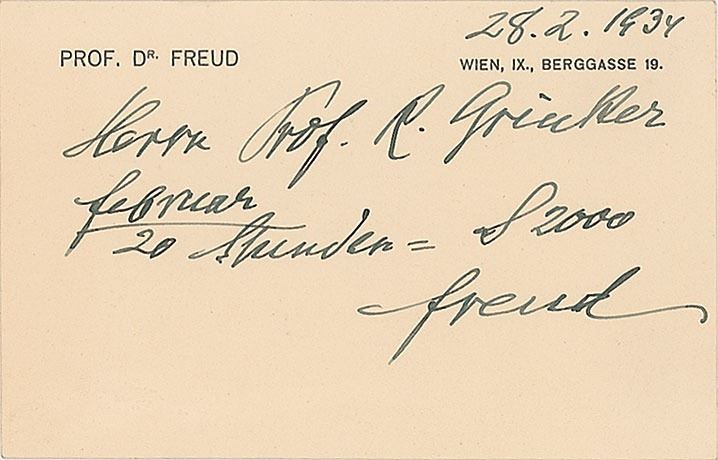 28.2.1934
PROF. DR. FREUD
WIEN, IX., BERGGASSE 19.
Herrn Prof. R. Grinker
februar
20 Stunden = S 2000
freud